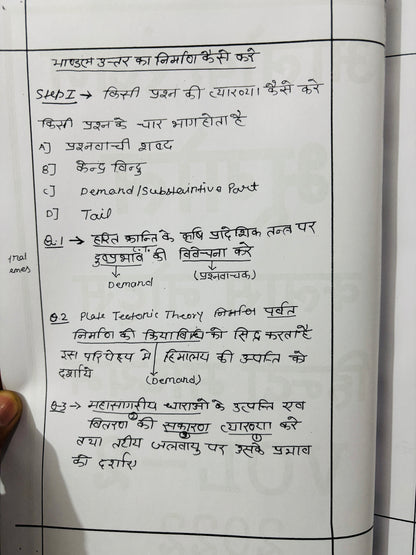 माण्डल उत्तर का निर्माण कैसे करे
Step I → किसी प्रश्न की व्याख्या कैसे करे
किसी प्रश्न के चार भाग होता है
A] प्रश्नवाची शब्द
B] केन्द्र विन्दु
C] Demand/Substaintive Part
D] Tail
Q.1 → हरित क्रान्ति के कृषि प्रादेशिक तन्त्र पर
दुष्प्रभाव की विवेचना करे
Demand (प्रश्नवाचक)
Q.2 Plate Tectonic Theory निर्माण पर्वत
निर्माण की क्रियाविधि को सिद्ध करता है
इस परिपेक्ष्य में हिमालय की उत्पत्ति को
दर्शाये
(Demand)
Q.3 → महासागरीय धाराओ के उत्पत्ति एवं
वितरण की सकारण व्याख्या करे
तथा तटीय जलवायु पर उसके प्रभाव
को दर्शाए